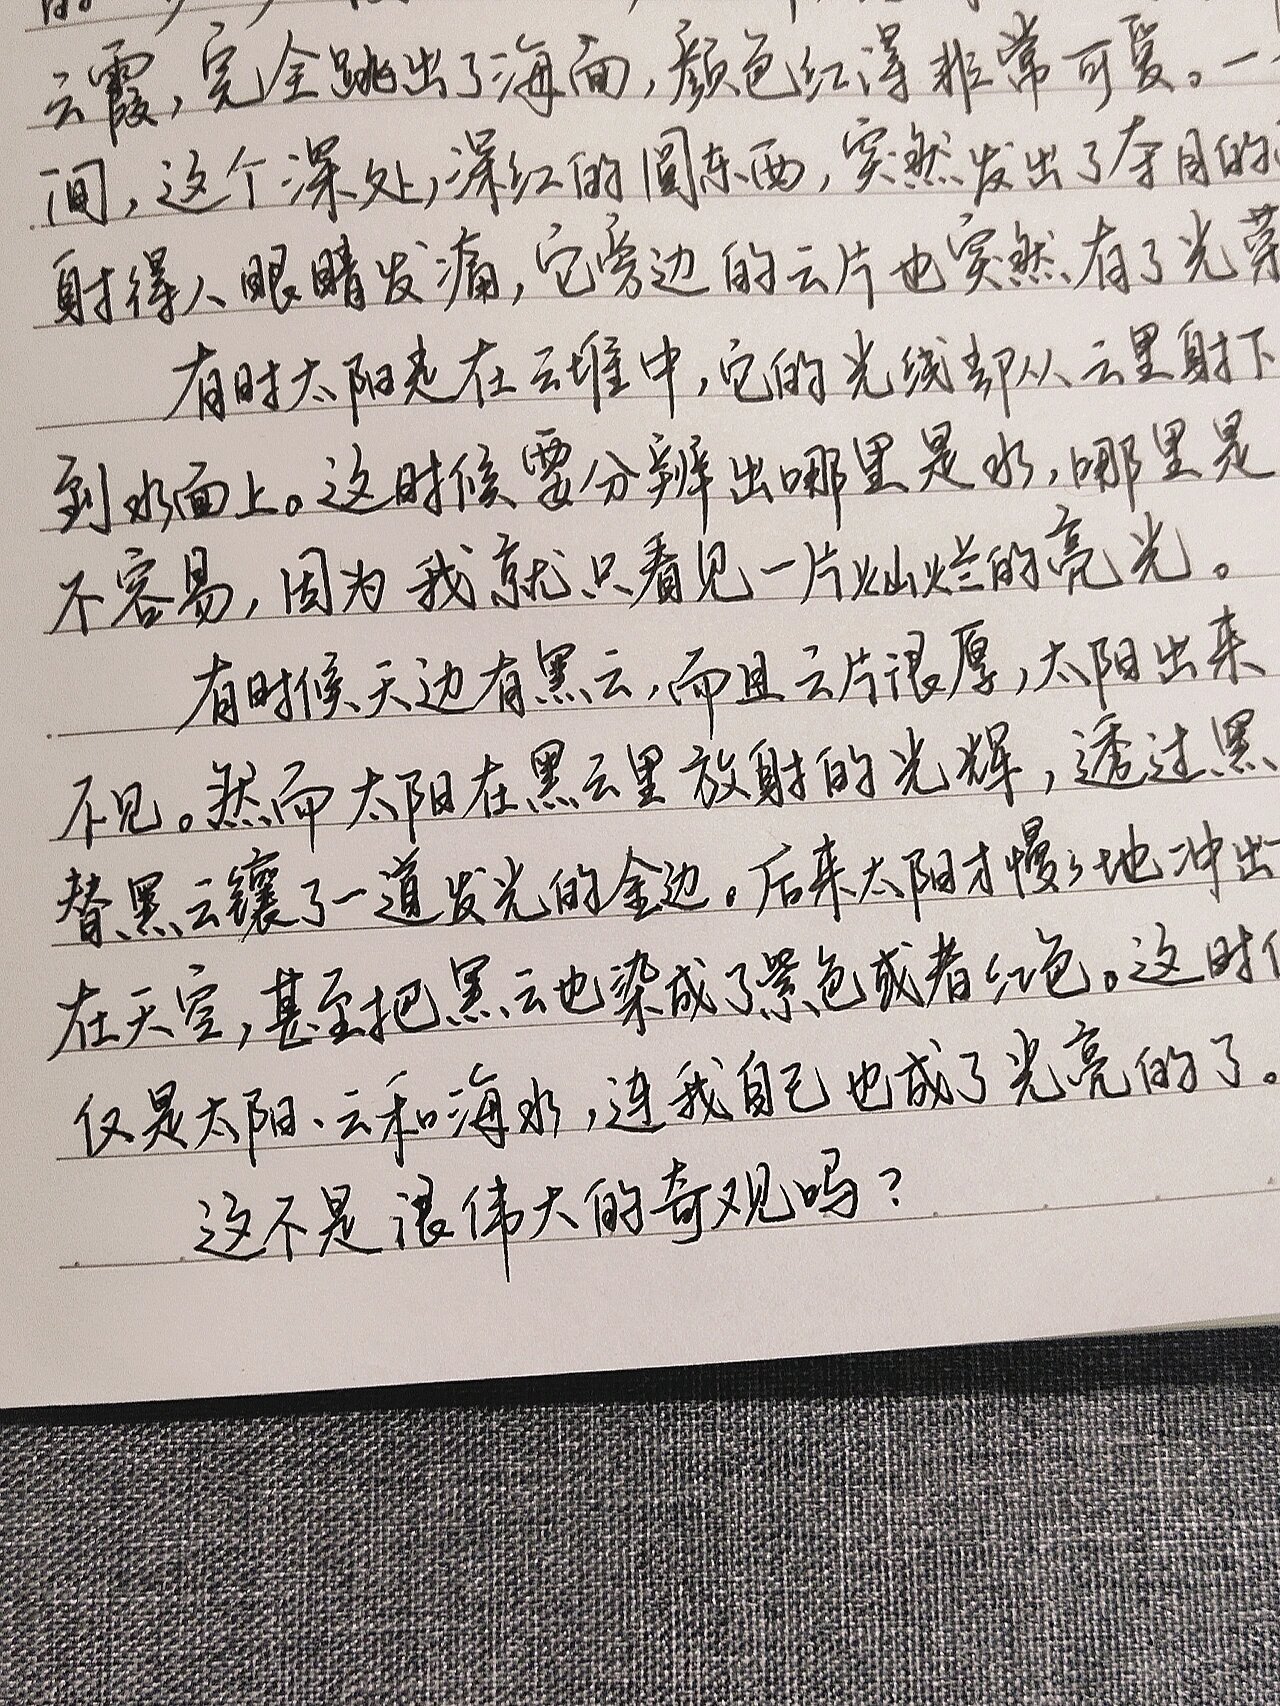 云霞，完全跳出了海面，颜色红得非常可爱。一
间，这个深处，深红的圆东西，突然发出了夺目的
射得人眼睛发痛，它旁边的云片也突然有了光
有时太阳走在云堆中，它的光线却从云里射下
到水面上。这时候要分辨出哪里是水，哪里是
不容易，因为我就只看见一片灿烂的亮光。
有时候天边有黑云，而且云片很厚，太阳出来
不见。然而太阳在黑云里放射的光辉，透过黑
替黑云镶了一道发光的金边。后来太阳才慢々地冲出
在天空，甚至把黑云也染成了紫色或者红色。这时
仅是太阳、云和海水，连我自己也成了光亮的了。
这不是很伟大的奇观吗？